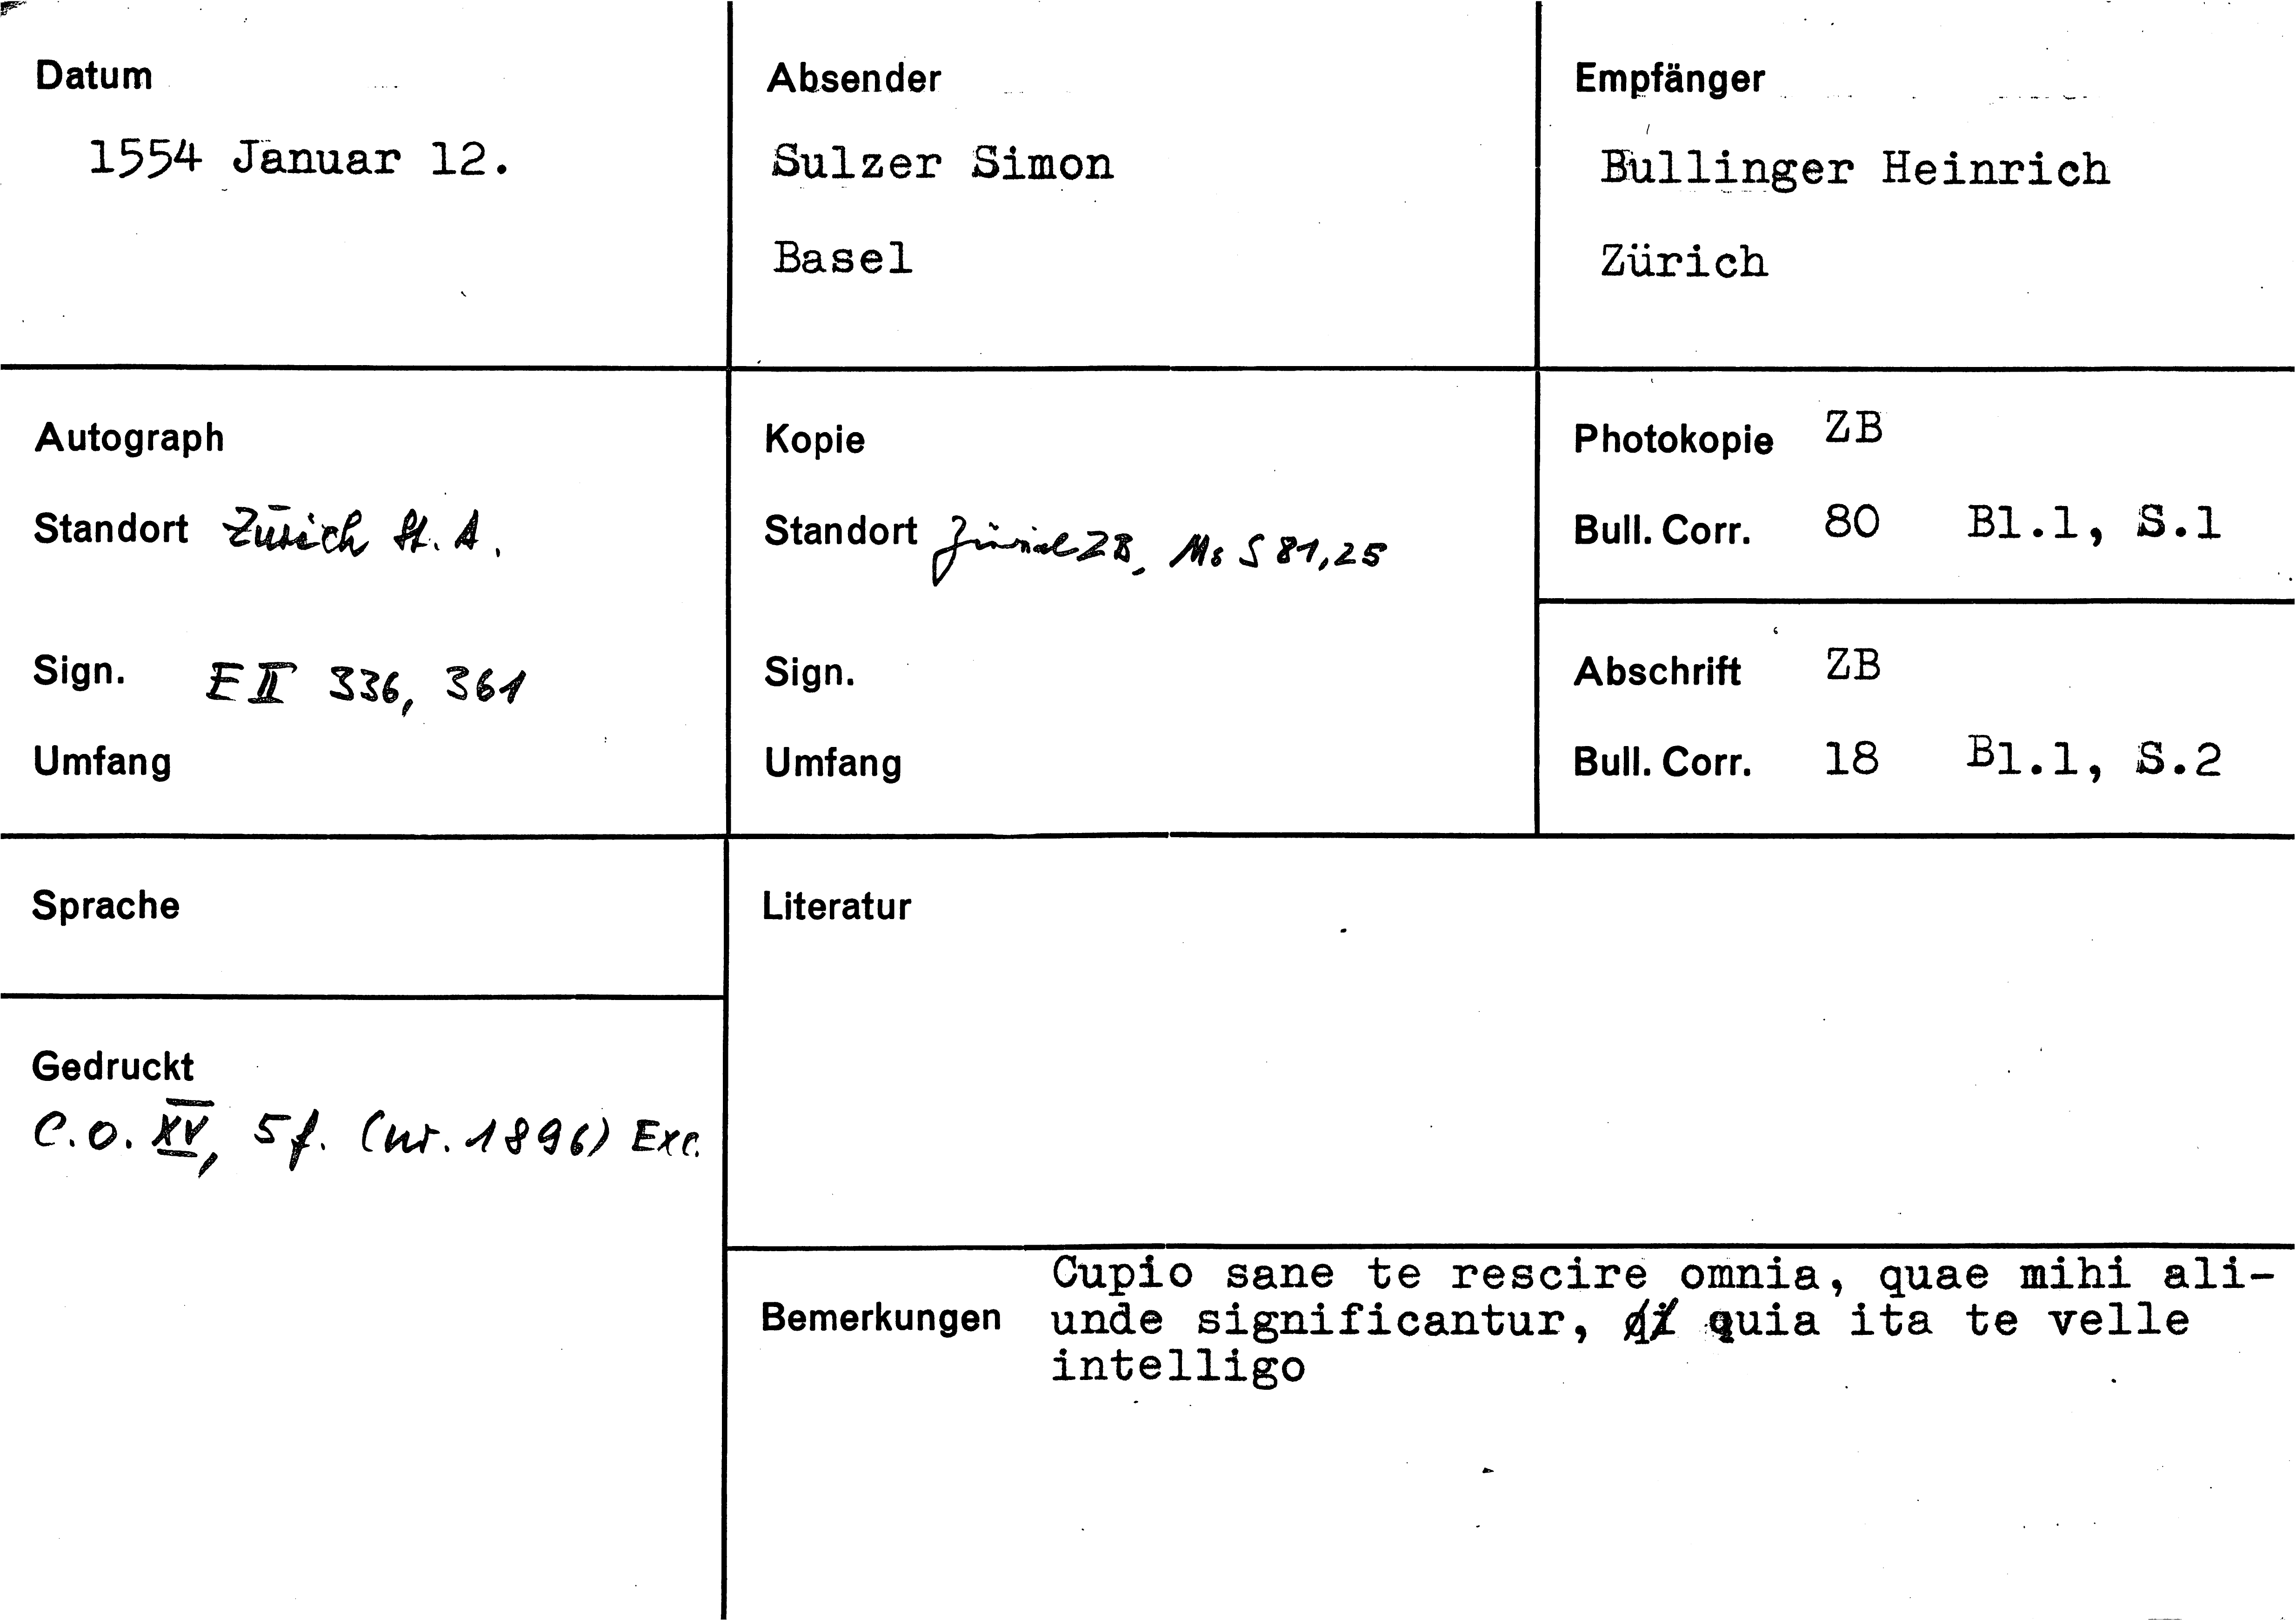 Datum
1554 Januar 12.
Absender
Sulzer Simon
Basel
Empfänger
Bullinger Heinrich
Zürich
Autograph
Standort Zürich St. A.
Sign. E II 336, 361
Umfang
Kopie
Standort Zürich ZB, Ms S 81,25
Sign.
Umfang
Photokopie ZB
Bull. Corr. 80 Bl.1, S.1
Abschrift ZB
Bull. Corr. 18 Bl.1, S.2
Sprache
Gedruckt
C.O. XV, 5f. (nr. 1896) Exc.
Literatur
Bemerkungen
Cupio sane te rescire omnia, quae mihi ali-
unde significantur, quia ita te velle
intelligo